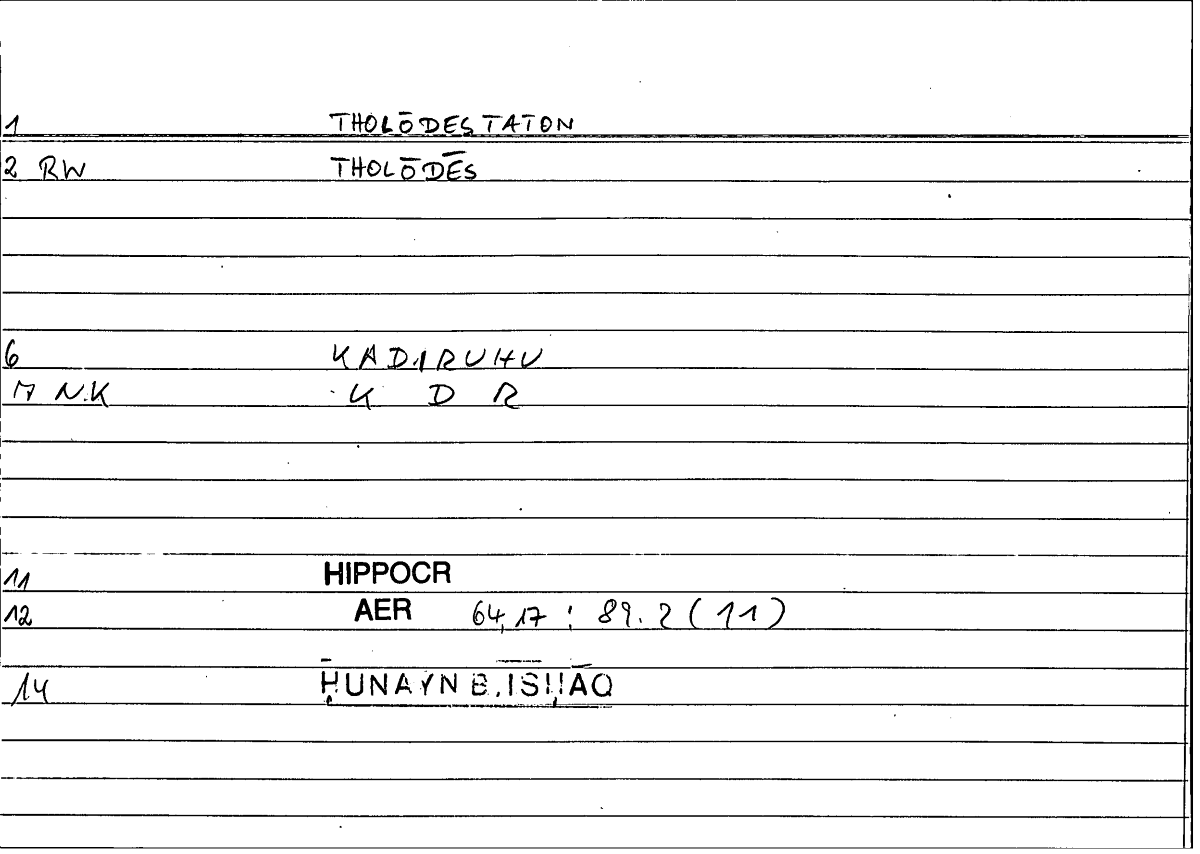 1 THOLŌDESTATON
2 RW THOLŌDĒS
6 KADIRUHU
7 N.K K D R
11 HIPPOCR
12 AER 64,17 : 89.2 (11)
14 ḤUNAYN B. ISḤĀQ